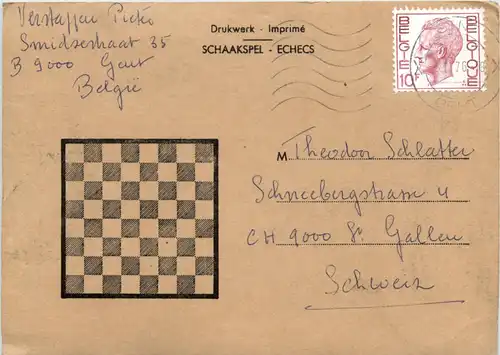 Verstappen Pieko
Smidsestraat 35
B 9000 Gent
België
Drukwerk - Imprimé
SCHAAKSPEL - ECHECS
BELGIE 10
BELGIQUE
M Theodor Schlatter
Schneebergstrasse 4
CH 9000 St. Gallen
Schweiz